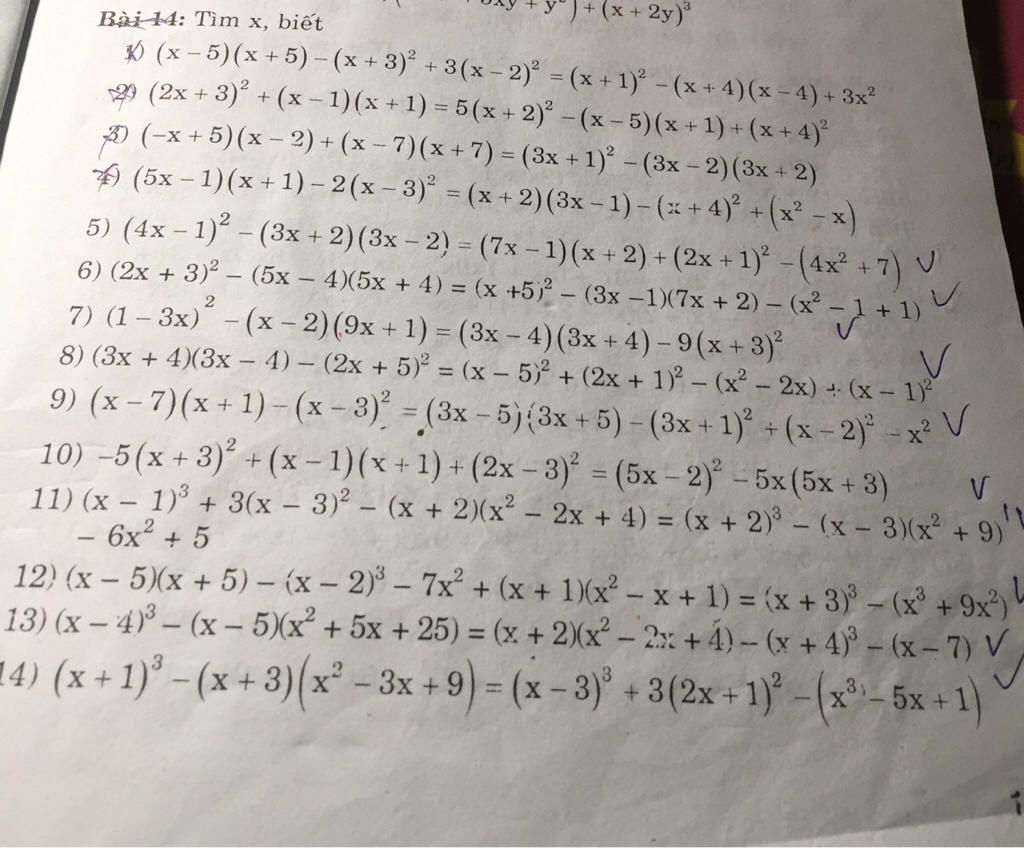 xy + y²) + (x + 2y)³
Bài 14: Tìm x, biết
1) (x − 5)(x + 5) − (x + 3)² + 3(x − 2)² = (x + 1)² − (x + 4)(x − 4) + 3x²
2) (2x + 3)² + (x − 1)(x + 1) = 5(x + 2)² − (x − 5)(x + 1) + (x + 4)²
3) (−x + 5)(x − 2) + (x − 7)(x + 7) = (3x + 1)² − (3x − 2)(3x + 2)
4) (5x − 1)(x + 1) − 2(x − 3)² = (x + 2)(3x − 1) − (x + 4)² + (x² − x)
5) (4x − 1)² − (3x + 2)(3x − 2) = (7x − 1)(x + 2) + (2x + 1)² − (4x² + 7)
6) (2x + 3)² − (5x − 4)(5x + 4) = (x +5)² − (3x −1)(7x + 2) − (x² − 1 + 1)
7) (1 − 3x)² − (x − 2)(9x + 1) = (3x − 4)(3x + 4) − 9(x + 3)²
8) (3x + 4)(3x − 4) − (2x + 5)² = (x − 5)² + (2x + 1)² − (x² − 2x) + (x − 1)²
9) (x − 7)(x + 1) − (x − 3)² = (3x − 5)(3x + 5) − (3x + 1)² + (x − 2)² − x²
10) −5(x + 3)² + (x − 1)(x + 1) + (2x − 3)² = (5x − 2)² − 5x(5x + 3)
11) (x − 1)³ + 3(x − 3)² − (x + 2)(x² − 2x + 4) = (x + 2)³ − (x − 3)(x² + 9)
− 6x² + 5
12) (x − 5)(x + 5) − (x − 2)³ − 7x² + (x + 1)(x² − x + 1) = (x + 3)³ − (x³ + 9x²)
13) (x − 4)³ − (x − 5)(x² + 5x + 25) = (x + 2)(x² − 2x + 4) − (x + 4)³ − (x − 7)
14) (x + 1)³ − (x + 3)(x² − 3x + 9) = (x − 3)³ + 3(2x + 1)² − (x³ − 5x + 1)